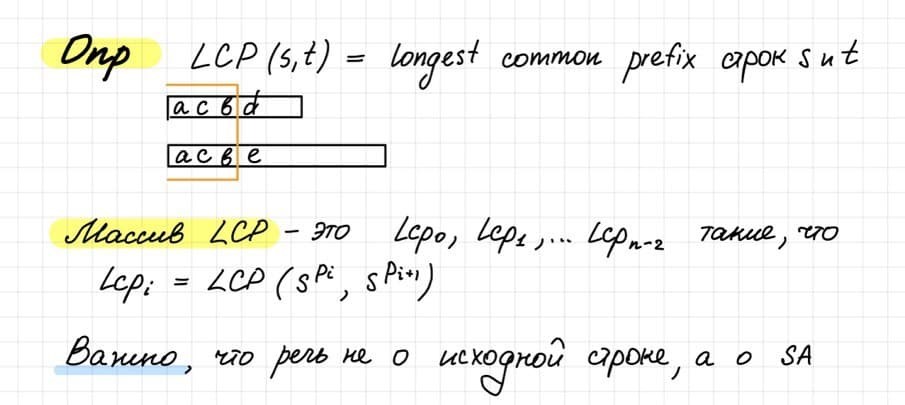 Опр LCP(s,t) = longest common prefix строк s и t
a c b d
a c b e
Массив LCP - это lcp₀, lcp₁,... lcpₙ₋₂ такие, что
lcpᵢ = LCP(s^{pᵢ}, s^{pᵢ₊₁})
Важно, что речь не о исходной строке, а о SA